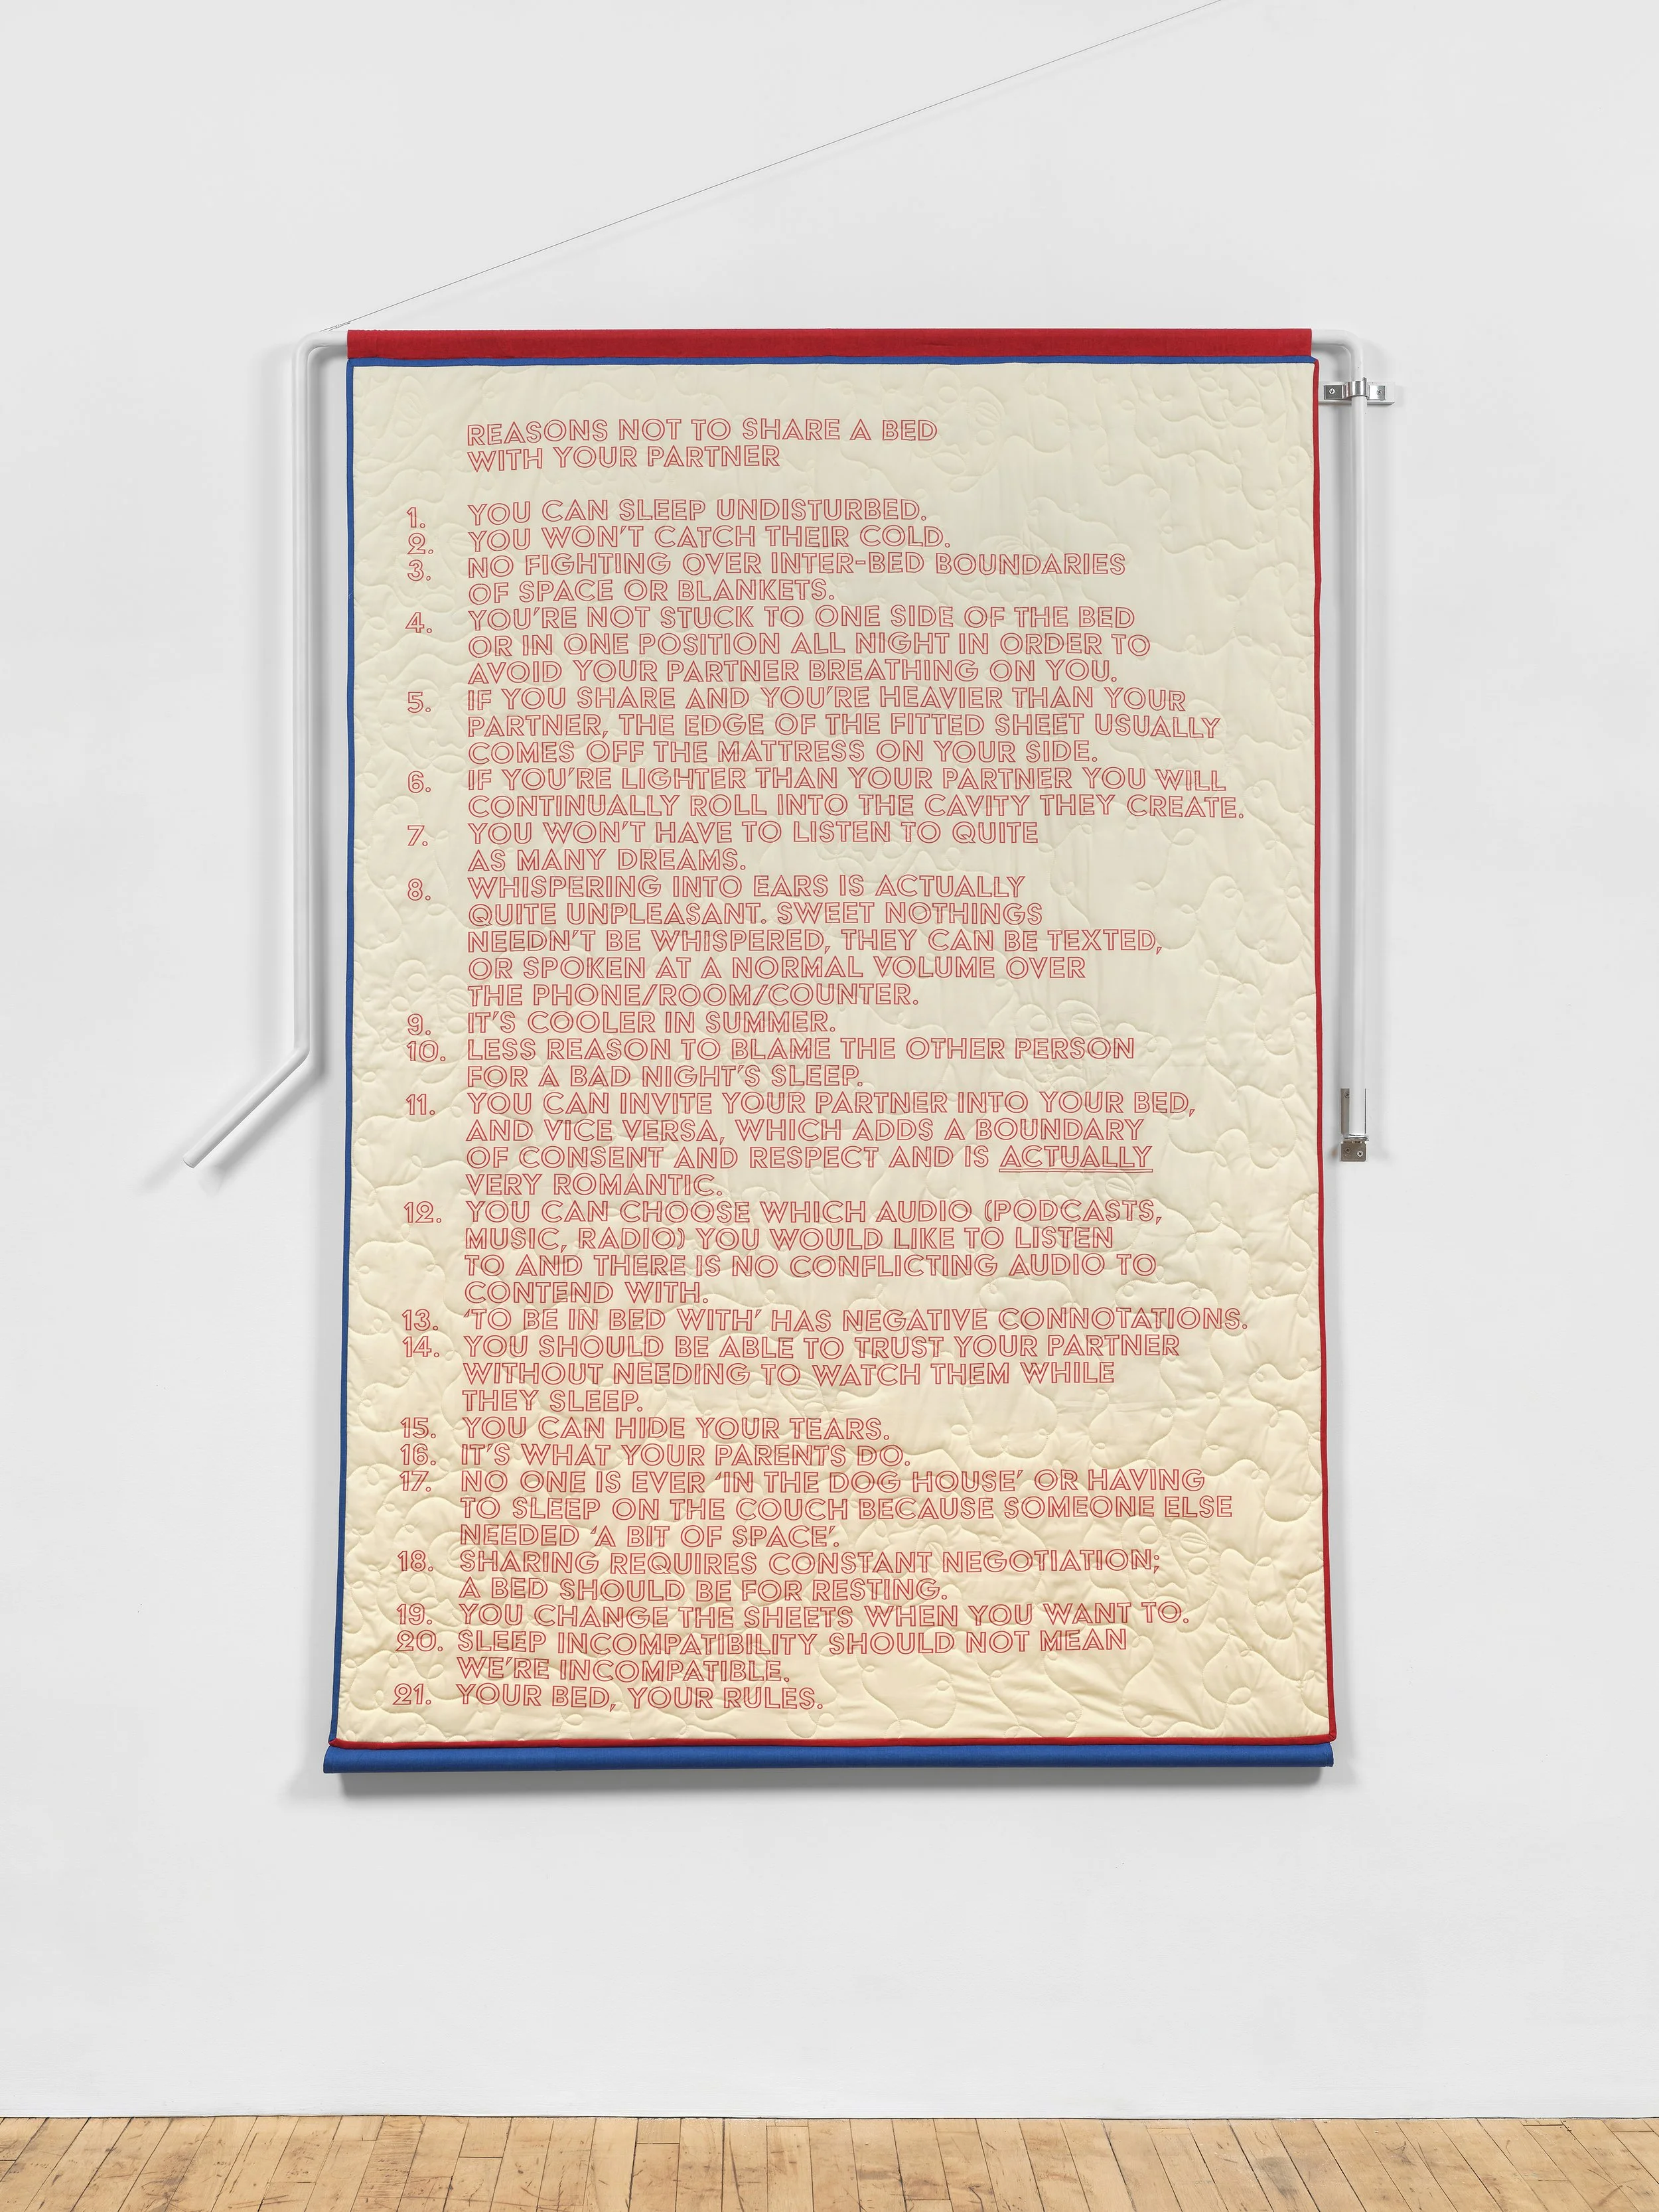 REASONS NOT TO SHARE A BED
WITH YOUR PARTNER
1. YOU CAN SLEEP UNDISTURBED.
2. YOU WON'T CATCH THEIR COLD.
3. NO FIGHTING OVER INTER-BED BOUNDARIES
OF SPACE OR BLANKETS.
4. YOU'RE NOT STUCK TO ONE SIDE OF THE BED
OR IN ONE POSITION ALL NIGHT IN ORDER TO
AVOID YOUR PARTNER BREATHING ON YOU.
5. IF YOU SHARE AND YOU'RE HEAVIER THAN YOUR
PARTNER, THE EDGE OF THE FITTED SHEET USUALLY
COMES OFF THE MATTRESS ON YOUR SIDE.
6. IF YOU'RE LIGHTER THAN YOUR PARTNER YOU WILL
CONTINUALLY ROLL INTO THE CAVITY THEY CREATE.
7. YOU WON'T HAVE TO LISTEN TO QUITE
AS MANY DREAMS.
8. WHISPERING INTO EARS IS ACTUALLY
QUITE UNPLEASANT. SWEET NOTHINGS
NEEDN'T BE WHISPERED, THEY CAN BE TEXTED,
OR SPOKEN AT A NORMAL VOLUME OVER
THE PHONE/ROOM/COUNTER.
9. IT'S COOLER IN SUMMER.
10. LESS REASON TO BLAME THE OTHER PERSON
FOR A BAD NIGHT'S SLEEP.
11. YOU CAN INVITE YOUR PARTNER INTO YOUR BED,
AND VICE VERSA, WHICH ADDS A BOUNDARY
OF CONSENT AND RESPECT AND IS ACTUALLY
VERY ROMANTIC.
12. YOU CAN CHOOSE WHICH AUDIO (PODCASTS,
MUSIC, RADIO) YOU WOULD LIKE TO LISTEN
TO AND THERE IS NO CONFLICTING AUDIO TO
CONTEND WITH.
13. 'TO BE IN BED WITH' HAS NEGATIVE CONNOTATIONS.
14. YOU SHOULD BE ABLE TO TRUST YOUR PARTNER
WITHOUT NEEDING TO WATCH THEM WHILE
THEY SLEEP.
15. YOU CAN HIDE YOUR TEARS.
16. IT'S WHAT YOUR PARENTS DO.
17. NO ONE IS EVER 'IN THE DOG HOUSE' OR HAVING
TO SLEEP ON THE COUCH BECAUSE SOMEONE ELSE
NEEDED 'A BIT OF SPACE'.
18. SHARING REQUIRES CONSTANT NEGOTIATION;
A BED SHOULD BE FOR RESTING.
19. YOU CHANGE THE SHEETS WHEN YOU WANT TO.
20. SLEEP INCOMPATIBILITY SHOULD NOT MEAN
WE'RE INCOMPATIBLE.
21. YOUR BED, YOUR RULES.